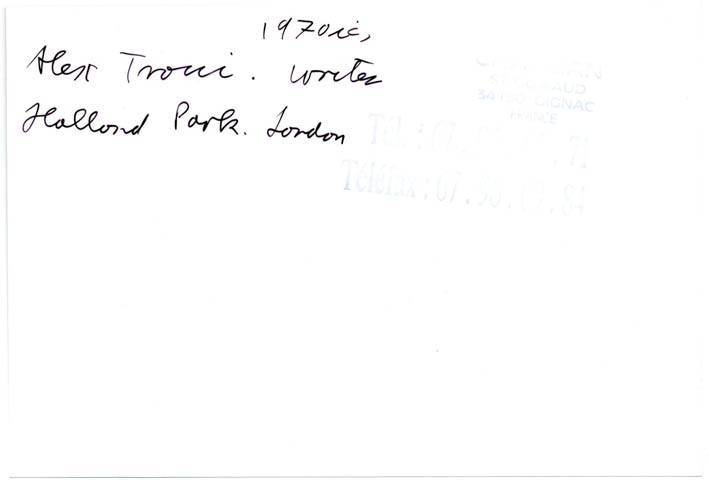 1970ies,
Alex Trocci. writer
Holland Park. London
34150 GIGNAC
FRANCE
Tél. :
Téléfax :